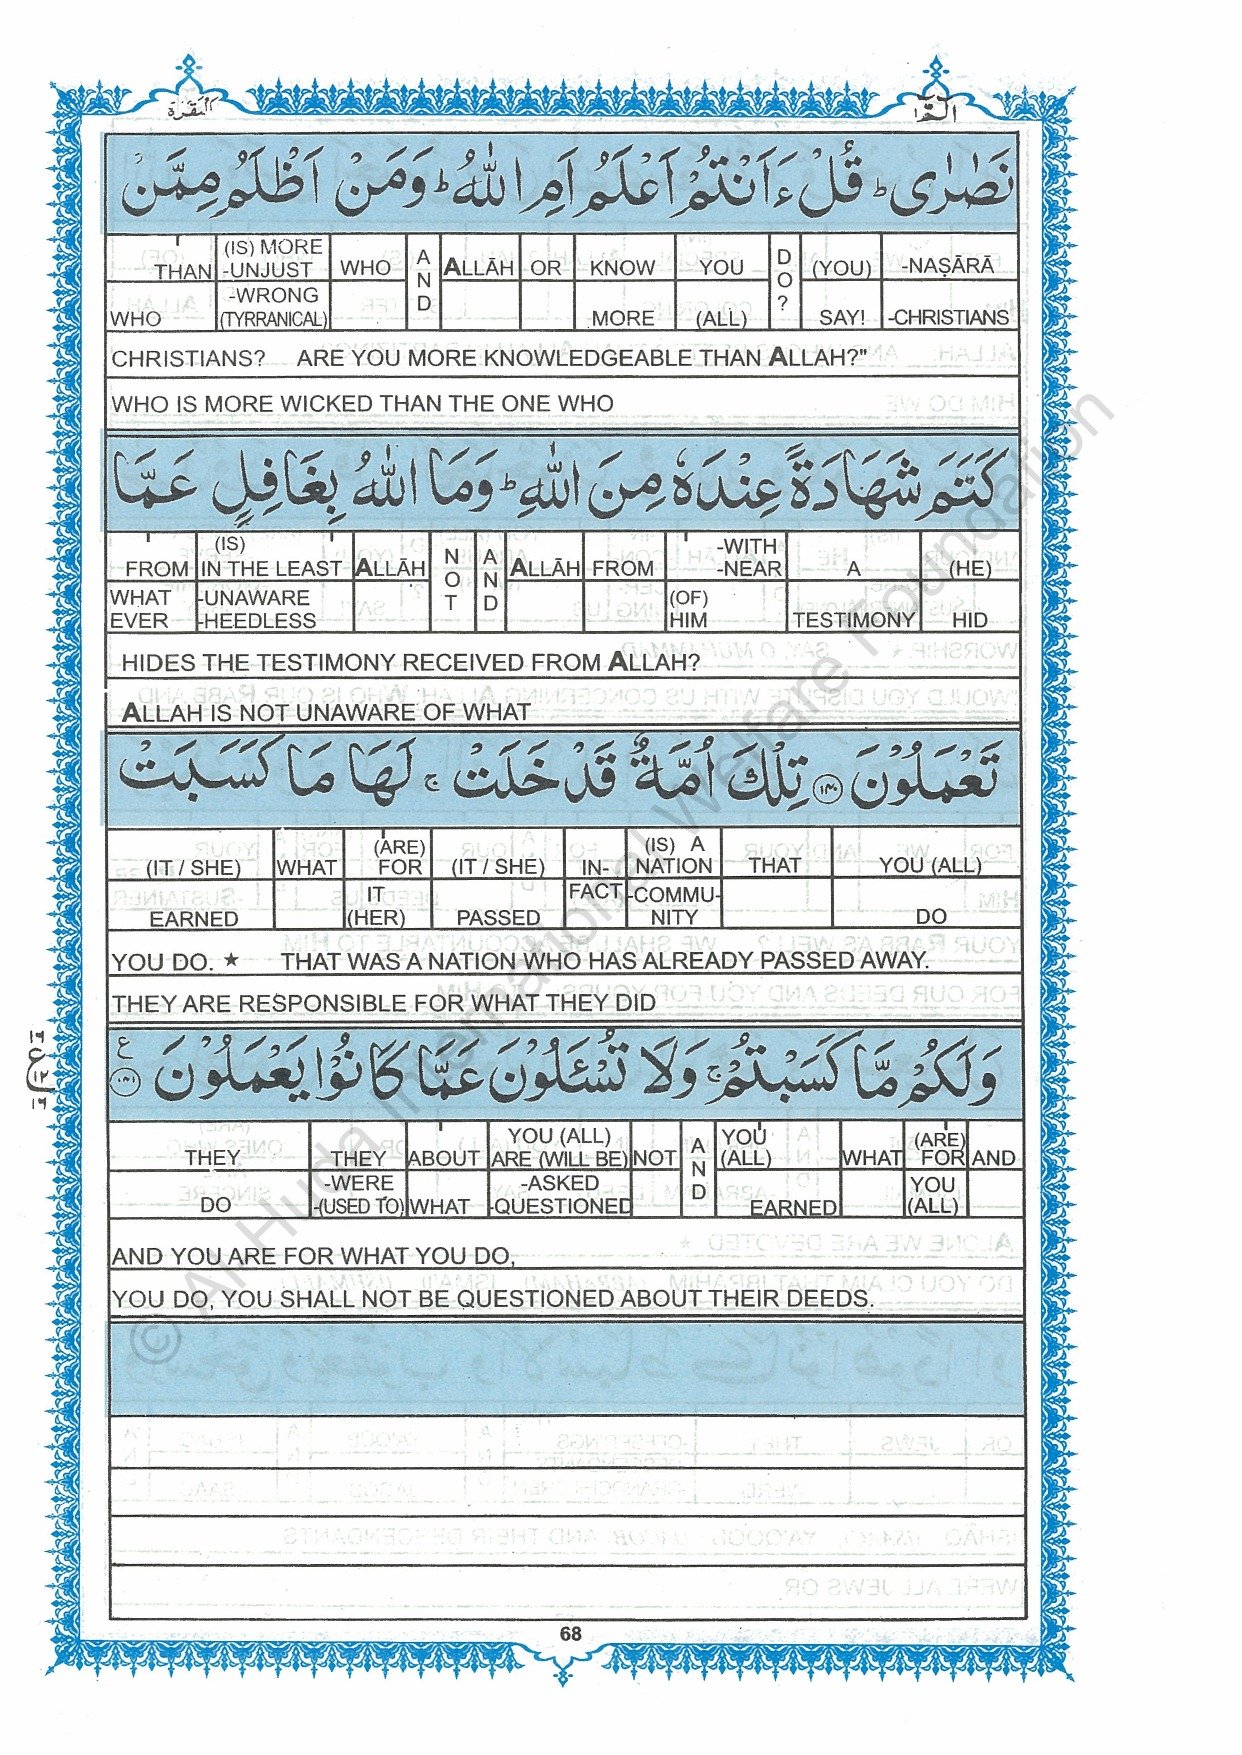 البقرة
الٓمّٓ ١
نَصٰرٰى ؕ قُلْ ءَاَنْتُمْ اَعْلَمُ اَمِ اللّٰهُ ؕ وَمَنْ اَظْلَمُ مِمَّنْ
THAN (IS) MORE -UNJUST WHO AND ALLĀH OR KNOW YOU DO? (YOU) -NAṢĀRĀ
WHO -WRONG (TYRRANICAL) MORE (ALL) SAY! -CHRISTIANS
CHRISTIANS? ARE YOU MORE KNOWLEDGEABLE THAN ALLAH?"
WHO IS MORE WICKED THAN THE ONE WHO
كَتَمَ شَهَادَةً عِنْدَهٗ مِنَ اللّٰهِ ؕ وَمَا اللّٰهُ بِغَافِلٍ عَمَّا
FROM (IS) IN THE LEAST ALLĀH NOT AND ALLĀH FROM -WITH -NEAR A (HE)
WHAT EVER -UNAWARE -HEEDLESS (OF) HIM TESTIMONY HID
HIDES THE TESTIMONY RECEIVED FROM ALLAH?
ALLAH IS NOT UNAWARE OF WHAT
تَعْمَلُوْنَ ﴿۱۴۰﴾ تِلْكَ اُمَّةٌ قَدْ خَلَتْ ۚ لَهَا مَا كَسَبَتْ
(IT / SHE) WHAT (ARE) FOR (IT / SHE) IN- (IS) A -NATION THAT YOU (ALL)
EARNED IT (HER) PASSED FACT -COMMU- NITY DO
YOU DO. ★ THAT WAS A NATION WHO HAS ALREADY PASSED AWAY.
THEY ARE RESPONSIBLE FOR WHAT THEY DID
وَلَكُمْ مَّا كَسَبْتُمْ ۚ وَلَا تُسْـَٔلُوْنَ عَمَّا كَانُوْا يَعْمَلُوْنَ ﴿۱۴۱﴾ ع
۱۶
ع
۱۲
۱۶
THEY THEY ABOUT YOU (ALL) ARE (WILL BE) NOT AND YOU (ALL) WHAT (ARE) FOR AND
DO -WERE -(USED TO) WHAT -ASKED -QUESTIONED EARNED YOU (ALL)
AND YOU ARE FOR WHAT YOU DO,
YOU DO, YOU SHALL NOT BE QUESTIONED ABOUT THEIR DEEDS.
68
© Al Huda International Welfare Foundation